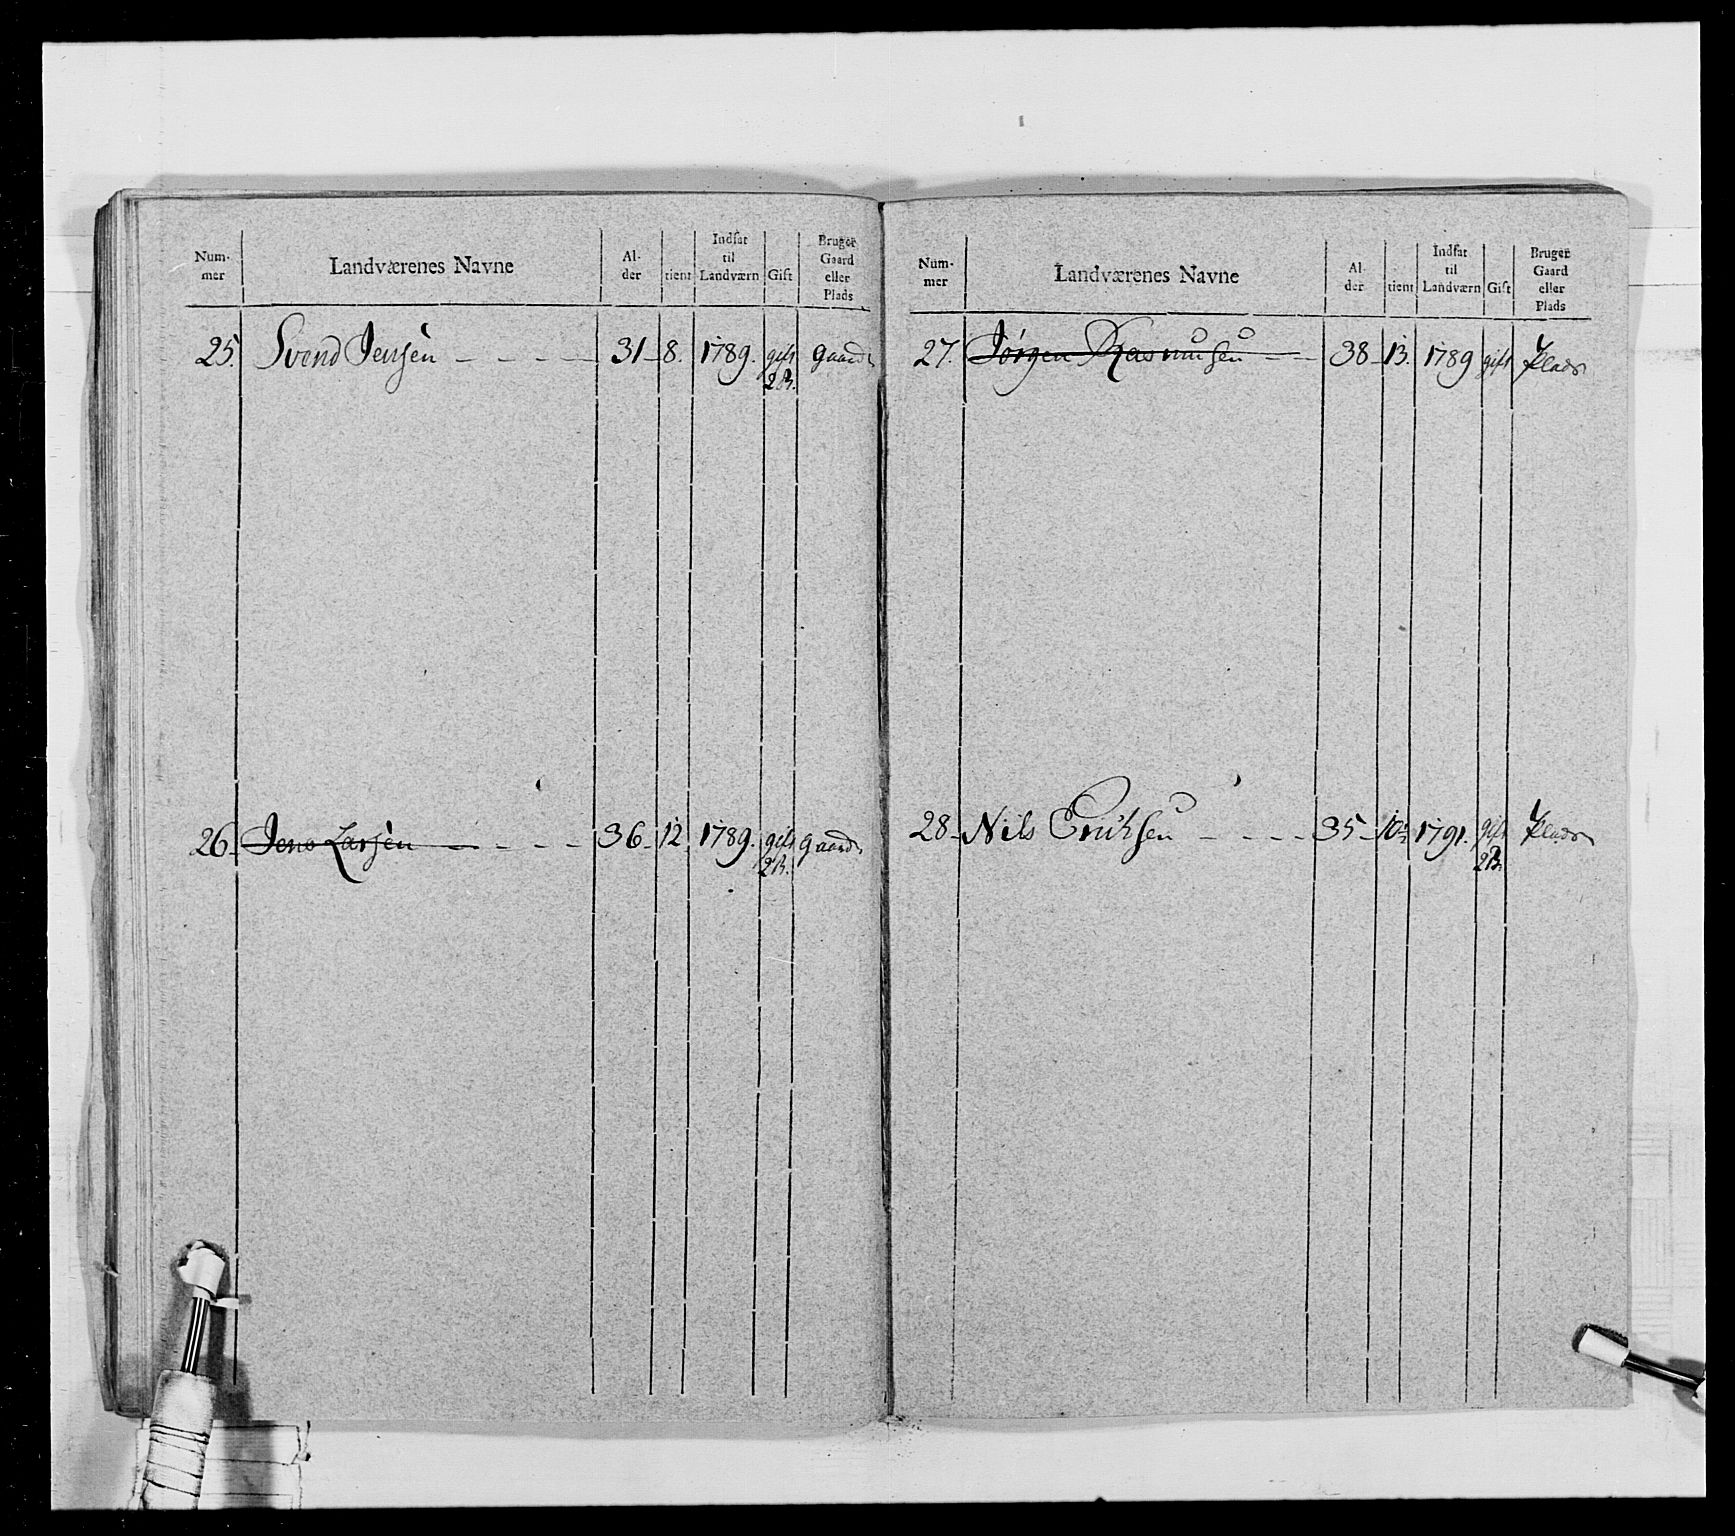 Num- mer Landværenes Navne Al- der tient Indsat til Landværn Gift Bruger Gaard eller Plads
25. Svend Jensen - - - - 31- 8. 1789. gift 2 B. gaard
26. Jens Larsen - - - - 36- 12 1789. gift 2 B. gaard
Num- mer Landværenes Navne Al- der tient Indsat til Landværn Gift Bruger Gaard eller Plads
27. Jørgen Rasmusen - - 38- 13. 1789 gift Plads
28- Nils Eriksen - - - - 35- 10½ 1791. gift 2 B. Plads